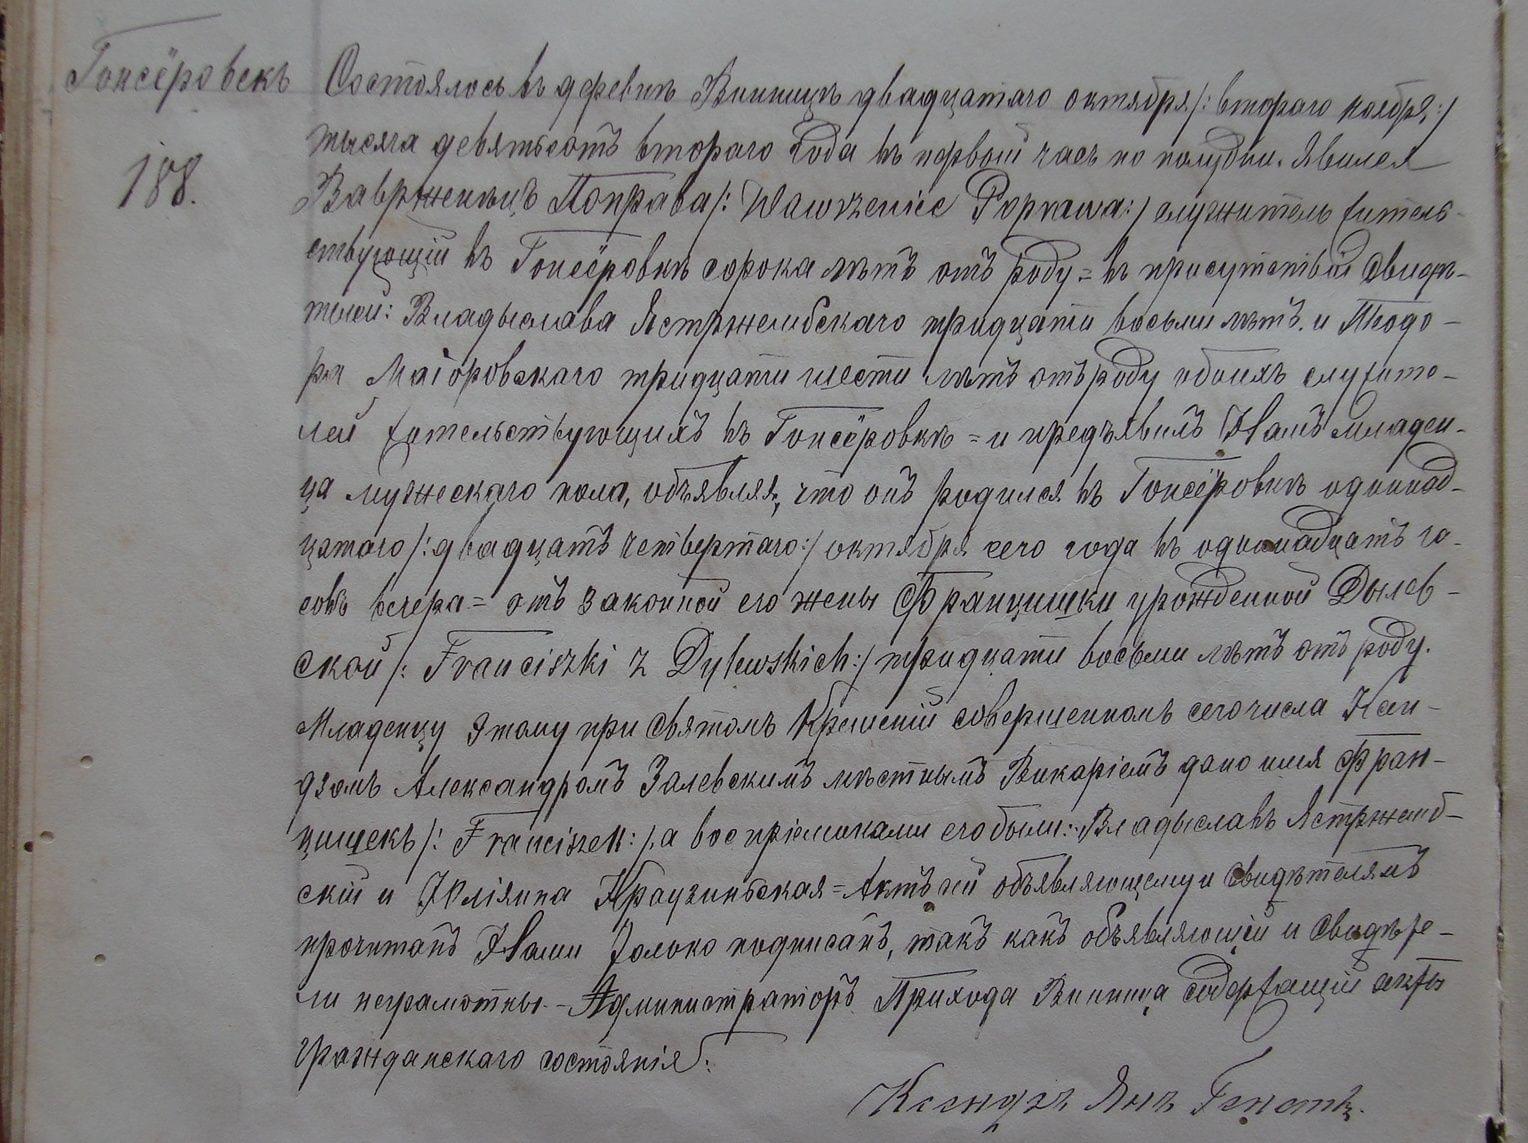 Гонсёровекъ
188.
Состоялось въ деревнѣ Винницѣ двадцатаго октября /: втораго ноября :/
тысяча девятьсотъ втораго года въ первый часъ по полудни. Явился
Вавржинецъ Поправа /: Wawrzeniec Poprawa :/ служитель житель-
ствующій въ Гонсёровкѣ сорока лѣтъ отъ роду = въ присутствіи Свидѣ-
телей: Владыслава Ястржембскаго тридцати восьми лѣтъ и Теодо-
ра Маіоровскаго тридцати шести лѣтъ отъ роду обоихъ служите-
лей жительствующихъ въ Гонсёровкѣ = и предъявилъ Намъ младен-
ца мужескаго пола, объявляя, что онъ родился въ Гонсёровкѣ одиннад-
цатаго /: двадцать четвертаго :/ октября сего года въ одиннадцать ча-
совъ вечера = отъ законной его жены Францишки урожденной Дылев-
ской /: Franciszki z Dylewskich :/ тридцати восьми лѣтъ отъ роду.
Младенцу этому при Святомъ Крещеніи совершенномъ сего числа Ксен-
дзомъ Александромъ Залевскимъ мѣстнымъ Викаріемъ дано имя Фран-
цишекъ /: Franciszek :/ а воспріемниками его были: Владыславъ Ястржемб-
скій и Юліянна Краузинская = Актъ сей объявляющему и Свидѣтелямъ
прочитанъ Нами только подписанъ, такъ какъ объявляющій и Свидѣте-
ли неграмотны. - Администраторъ Прихода Винница содержащій акты
гражданскаго состоянія:
Ксендзъ Янъ